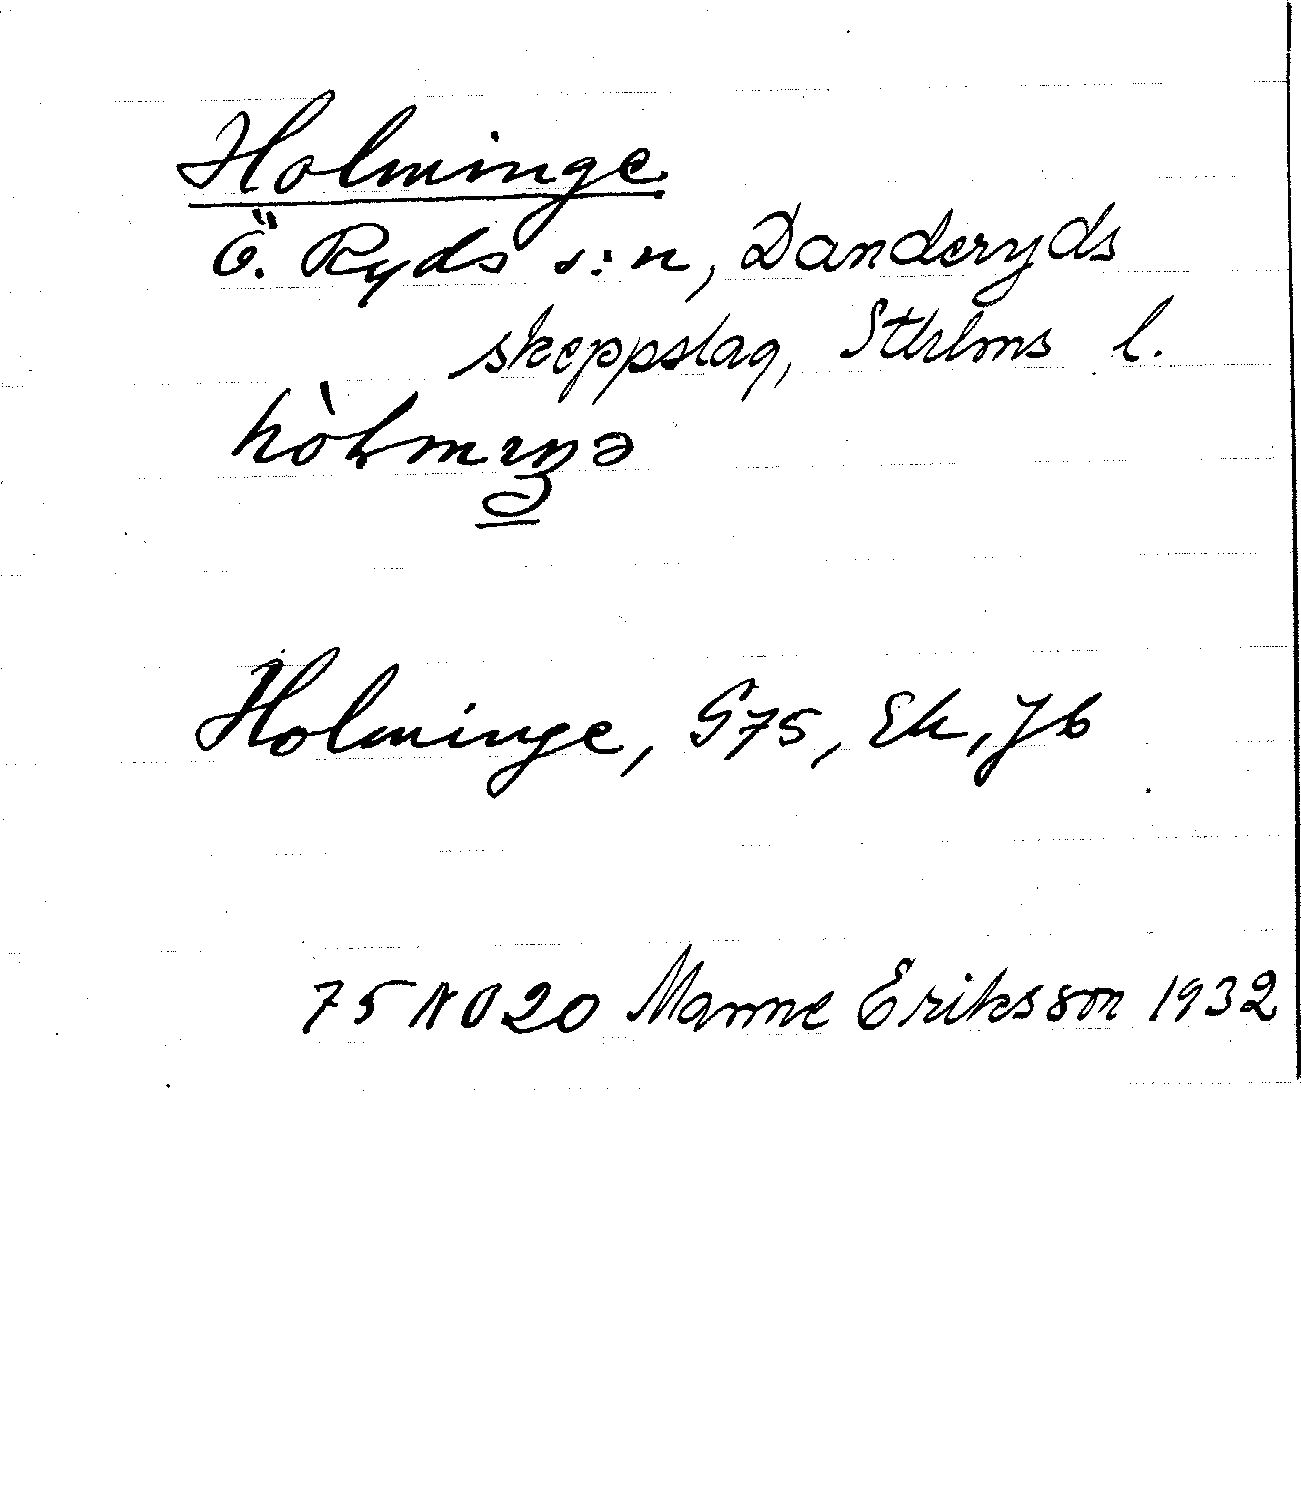 Holminge
Ö. Ryds s:n, Danderyds
skeppslag, Sthlms l.
Holminge, G75, Ek, Jb
75 NO 20 Manne Eriksson 1932